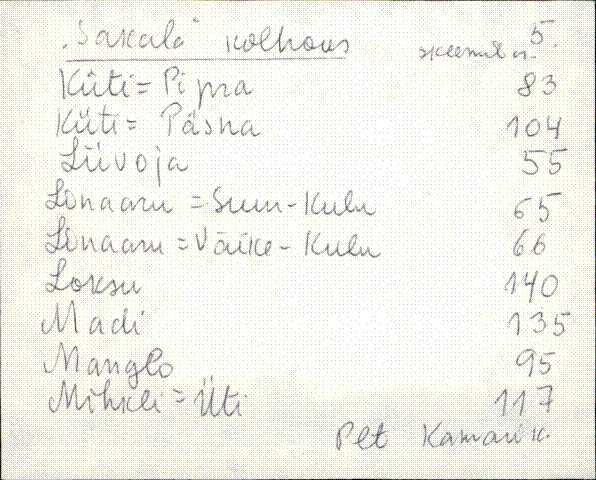 "Sakala" kolhoos
5.
skeemil nr.
Küti=Pipra 83
Küti= Päsna 104
Liivoja 55
Lõnaaru =Suur-Kulu 65
Lõnaaru =Väike-Kulu 66
Loksu 140
Madi 135
Manglo 95
Mihkli=Üti 117